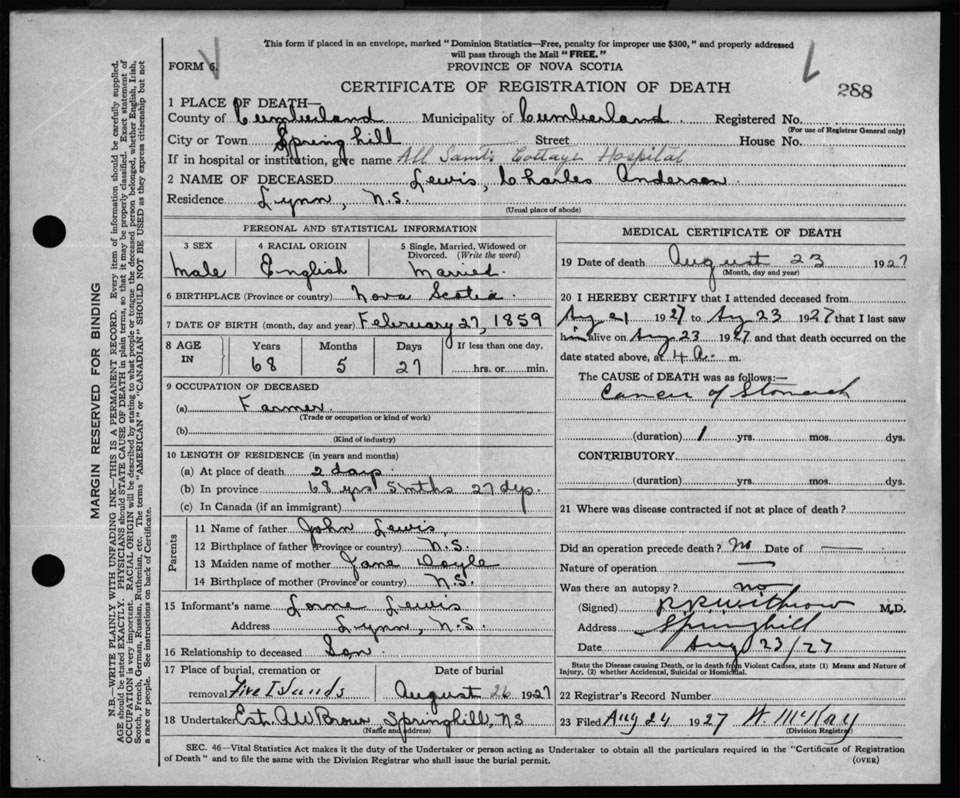 This form if placed in an envelope, marked "Dominion Statistics—Free, penalty for improper use $300," and properly addressed
will pass through the Mail "FREE."
FORM 6.
PROVINCE OF NOVA SCOTIA
CERTIFICATE OF REGISTRATION OF DEATH
288
1 PLACE OF DEATH—
County of Cumberland Municipality of Cumberland Registered No.
(For use of Registrar General only)
City or Town Springhill Street House No.
If in hospital or institution, give name All Saints Cottage Hospital
2 NAME OF DECEASED Lewis, Charles Anderson
Residence Lynn, N.S.
(Usual place of abode)
PERSONAL AND STATISTICAL INFORMATION
3 SEX 4 RACIAL ORIGIN 5 Single, Married, Widowed or
Divorced. (Write the word)
Male English Married.
6 BIRTHPLACE (Province or country) Nova Scotia.
7 DATE OF BIRTH (month, day and year) February 27, 1859
8 AGE IN Years Months Days If less than one day,
68 5 27 hrs. or min.
9 OCCUPATION OF DECEASED
(a) Farmer.
(Trade or occupation or kind of work)
(b)
(Kind of industry)
10 LENGTH OF RESIDENCE (in years and months)
(a) At place of death 2 days.
(b) In province 68 yrs 5 mths 27 dys.
(c) In Canada (if an immigrant)
Parents
11 Name of father John Lewis
12 Birthplace of father (Province or country) N.S.
13 Maiden name of mother Jane Doyle
14 Birthplace of mother (Province or country) N.S.
15 Informant's name Lorne Lewis
Address Lynn, N.S.
16 Relationship to deceased Son.
17 Place of burial, cremation or Date of burial
removal Five Islands August 26 1927
18 Undertaker Est. A W Brown Springhill, NS
(Name and address)
MEDICAL CERTIFICATE OF DEATH
19 Date of death August 23 1927
(Month, day and year)
20 I HEREBY CERTIFY that I attended deceased from
Aug 21 1927 to Aug 23 1927 that I last saw
him alive on Aug 23 1927 and that death occurred on the
date stated above, at 4 a. m.
The CAUSE OF DEATH was as follows:—
Cancer of Stomach
(duration) 1 yrs. mos. dys.
CONTRIBUTORY
(duration) yrs. mos. dys.
21 Where was disease contracted if not at place of death?
Did an operation precede death? No Date of —
Nature of operation —
Was there an autopsy? no
(Signed) Withrow M.D.
Address Springhill
Date Aug 23/27
State the Disease causing Death, or in death from Violent Causes, state (1) Means and Nature of
Injury, (2) whether Accidental, Suicidal or Homicidal.
22 Registrar's Record Number
23 Filed Aug 24 1927 W. McKay
(Division Registrar)
SEC. 46—Vital Statistics Act makes it the duty of the Undertaker or person acting as Undertaker to obtain all the particulars required in the "Certificate of Registration
of Death" and to file the same with the Division Registrar who shall issue the burial permit.
(OVER)
MARGIN RESERVED FOR BINDING
N.B.—WRITE PLAINLY WITH UNFADING INK—THIS IS A PERMANENT RECORD. Every item of information should be carefully supplied.
AGE should be stated EXACTLY. PHYSICIANS should STATE CAUSE OF DEATH in plain terms, so that it may be properly classified. Exact statement of
OCCUPATION is very important. RACIAL ORIGIN will be described by stating to what people or tongue the deceased person belonged, whether English, Irish,
Scotch, French, German, Russian, Ruthenian, etc. The terms "AMERICAN" or "CANADIAN" SHOULD NOT BE USED as they express citizenship but not
a race or people. See instructions on back of Certificate.